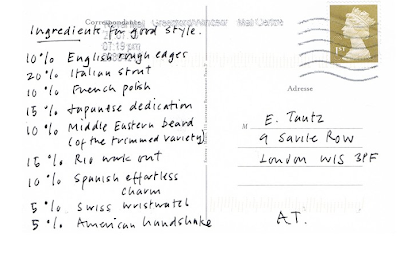 Correspondance
Greenford/Windsor Mail Centre
07:19 pm
Ingredients for good style.
10% English rough edges
20% Italian stout
10% French polish
15% Japanese dedication
10% Middle Eastern beard
(of the trimmed variety)
15% Rio work out
10% Spanish effortless
charm
5% Swiss wristwatch
5% American handshake
1ST
Adresse
M
E. Tautz
9 Savile Row
London W1S 3PF
A.T.